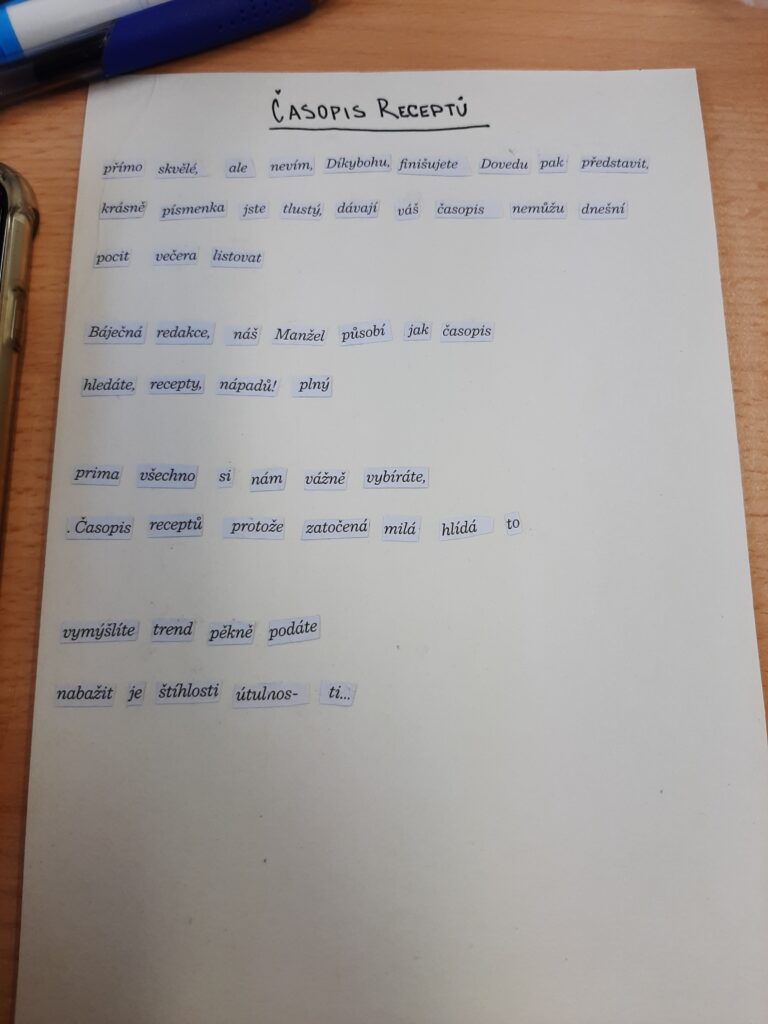 ČASOPIS RECEPTŮ
přímo skvělé, ale nevím, Díkybohu, finišujete Dovedu pak představit,
krásně písmenka jste tlustý, dávají váš časopis nemůžu dnešní
pocit večera listovat
Báječná redakce, náš Manžel působí jak časopis
hledáte, recepty, nápadů! plný
prima všechno si nám vážně vybíráte,
. Časopis receptů protože zatočená milá hlídá to
vymýšlíte trend pěkně podáte
nabažit je štíhlosti útulnos- ti...